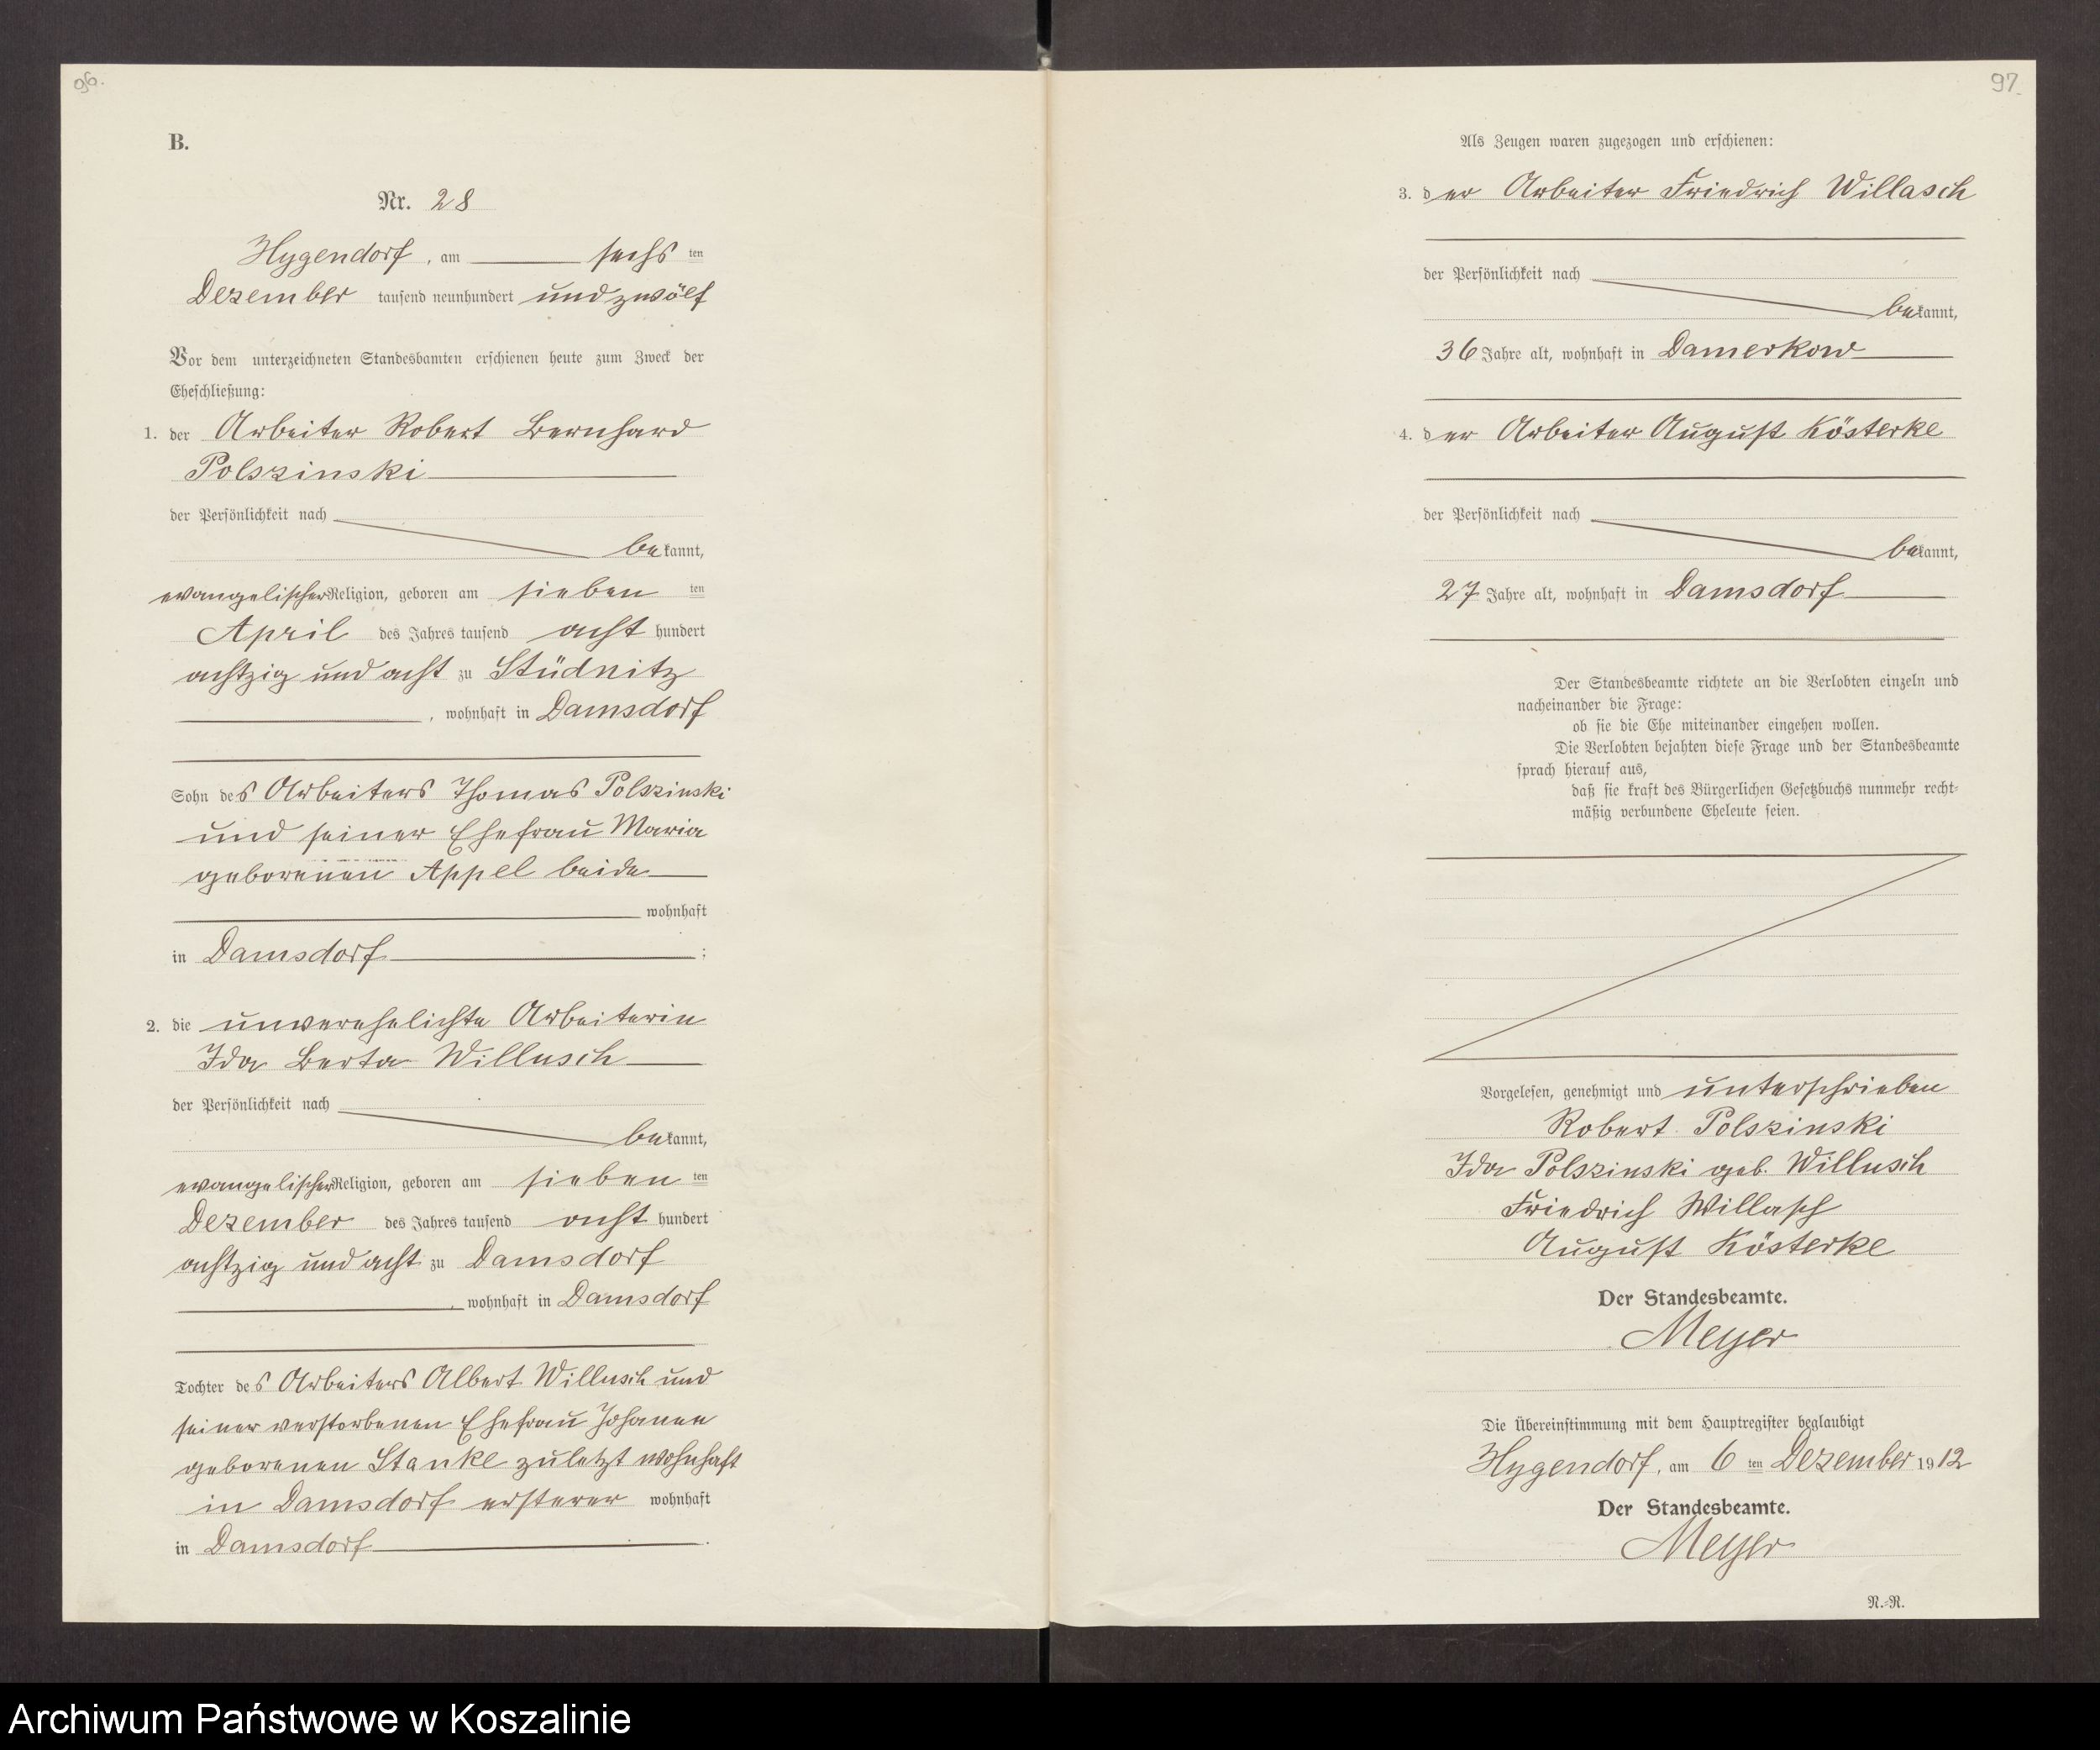 96.
B.
Nr. 28
Hygendorf, am sechs ten
Dezember tausend neunhundert und zwölf
Vor dem unterzeichneten Standesbamten erschienen heute zum Zweck der
Eheschließung:
1. der Arbeiter Robert Bernhard
Polszinski
der Persönlichkeit nach
bekannt,
evangelischer Religion, geboren am sieben ten
April des Jahres tausend acht hundert
achtzig und acht zu Stüdnitz
, wohnhaft in Damsdorf
Sohn des Arbeiters Thomas Polszinski
und seiner Ehefrau Maria
geborenen Appel beide
wohnhaft
in Damsdorf ;
2. die unverehelichte Arbeiterin
Ida Berta Willusch
der Persönlichkeit nach
bekannt,
evangelischer Religion, geboren am sieben ten
Dezember des Jahres tausend acht hundert
achtzig und acht zu Damsdorf
, wohnhaft in Damsdorf
Tochter des Arbeiters Albert Willusch und
seiner verstorbenen Ehefrau Johanne
geborenen Stanke zuletzt wohnhaft
in Damsdorf ersterer wohnhaft
in Damsdorf .
97.
Als Zeugen waren zugezogen und erschienen:
3. der Arbeiter Friedrich Willasch
der Persönlichkeit nach
bekannt,
36 Jahre alt, wohnhaft in Damerkow
4. der Arbeiter August Kösterke
der Persönlichkeit nach
bekannt,
27 Jahre alt, wohnhaft in Damsdorf
Der Standesbeamte richtete an die Verlobten einzeln und
nacheinander die Frage:
ob sie die Ehe miteinander eingehen wollen.
Die Verlobten bejahten diese Frage und der Standesbeamte
sprach hierauf aus,
daß sie kraft des Bürgerlichen Gesetzbuchs nunmehr recht-
mäßig verbundene Eheleute seien.
Vorgelesen, genehmigt und unterschrieben
Robert Polszinski
Ida Polszinski geb. Willusch
Friedrich Willasch
August Kösterke
Der Standesbeamte.
Meyer
Die Übereinstimmung mit dem Hauptregister beglaubigt
Hygendorf, am 6 ten Dezember 1912
Der Standesbeamte.
Meyer
N.-R.
Archiwum Państwowe w Koszalinie